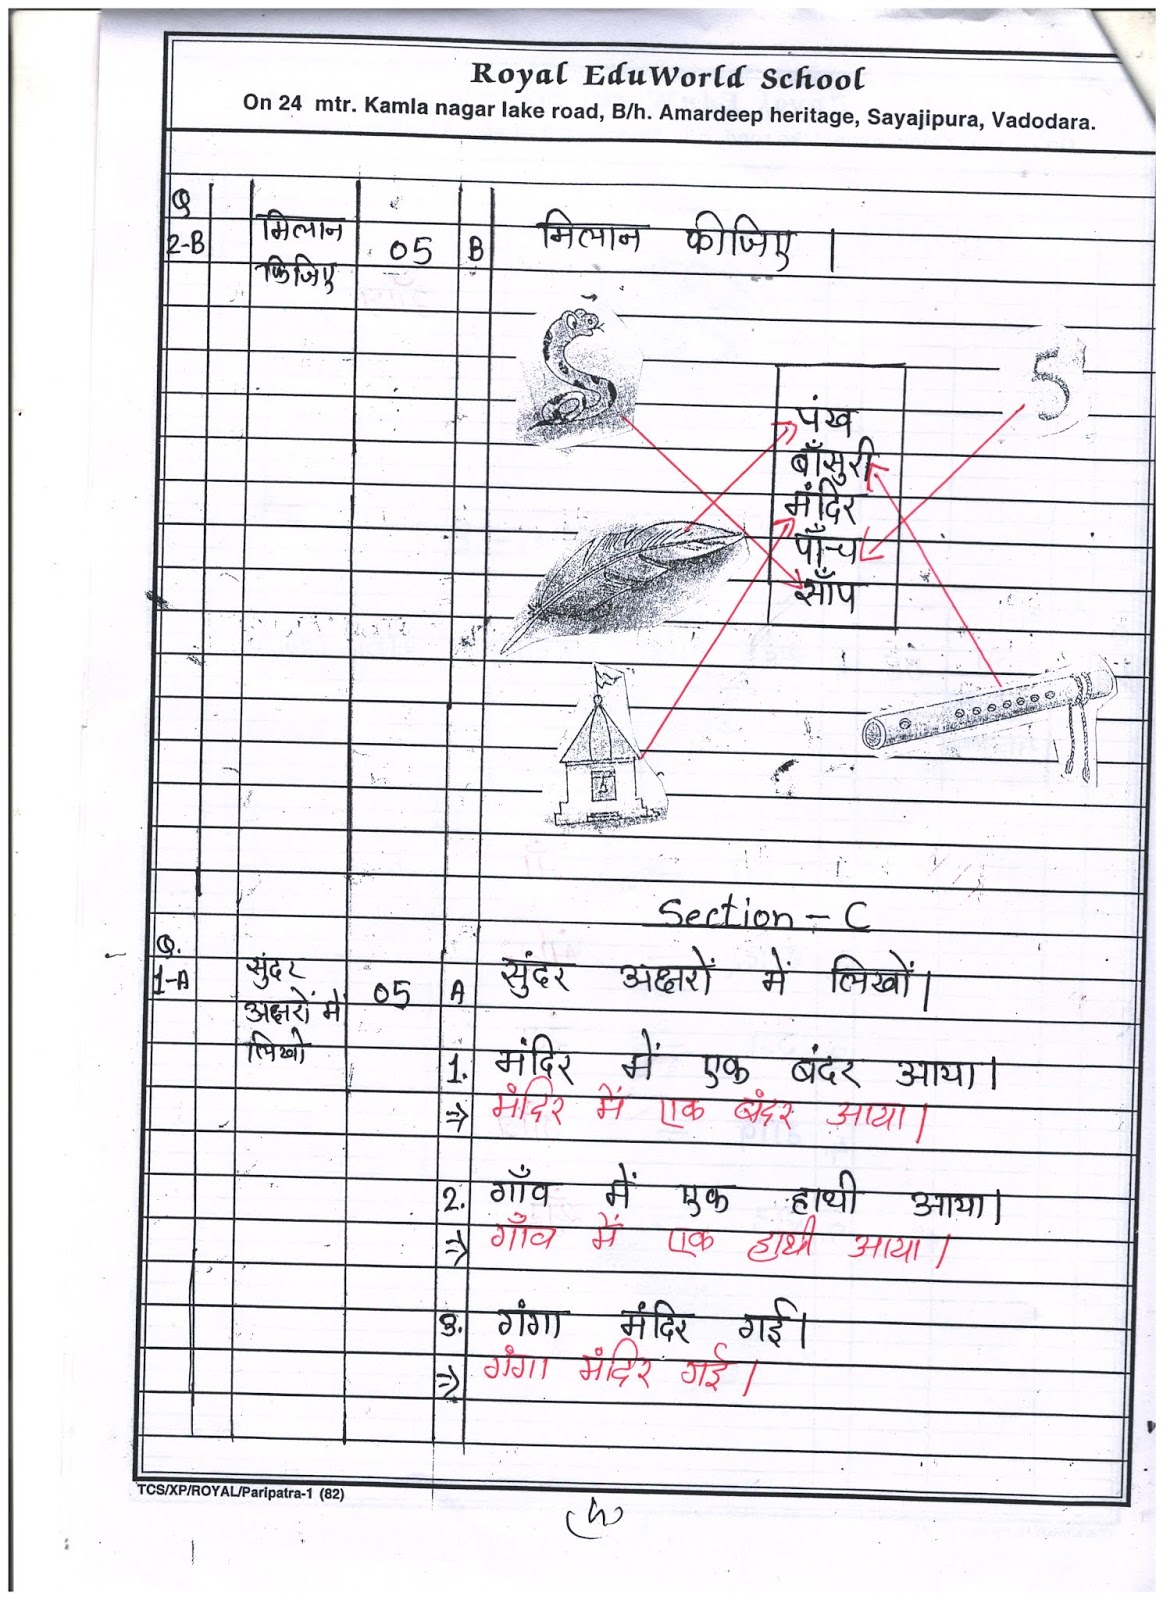 Royal EduWorld School
On 24 mtr. Kamla nagar lake road, B/h. Amardeep heritage, Sayajipura, Vadodara.
Q
2-B
मिलान
किजिए
05
B
मिलान कीजिए |
5
पंख
बाँसुरी
मंदिर
पाँच
साँप
Section - C
Q.
1-A
सुंदर
अक्षरों में
लिखो
05
A
सुंदर अक्षरों में लिखों।
1. मंदिर में एक बंदर आया।
⇒ मंदिर में एक बंदर आया।
2. गाँव में एक हाथी आया।
⇒ गाँव में एक हाथी आया।
3. गंगा मंदिर गई।
⇒ गंगा मंदिर गई।
TCS/XP/ROYAL/Paripatra-1 (82)